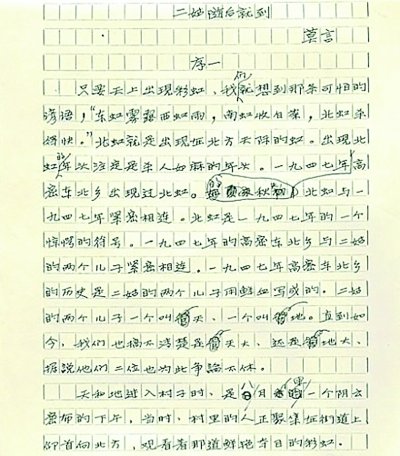 二姑随后就到
莫言
序一
只要天上出现彩虹，我们就想到那条可怕的
谚语，“东虹雾露西虹雨，南虹收白菜，北虹杀
得快。”北虹就是出现在北方天际的虹。出现北
虹的年头注定是杀人如麻的年头。一九四七年高
密东北乡出现过北虹。北虹与一
九四七年紧密相连。北虹是一九四七年的一个
惊愕的符号。一九四七年的高密东北乡与二姑
的两个儿子紧密相连。一九四七年高密东北乡
的历史是二姑的两个儿子用鲜血写成的。二姑
的两个儿子一个叫天，一个叫地。直到如
今，我们也搞不清楚是天大，还是地大，
据说他们二位也为此争论不休。
天和地进入村子时，是月的一个阴云
密布的下午，当时，村里的人正聚集在街道上
首向北方，观看着那道鲜艳夺目的彩虹。